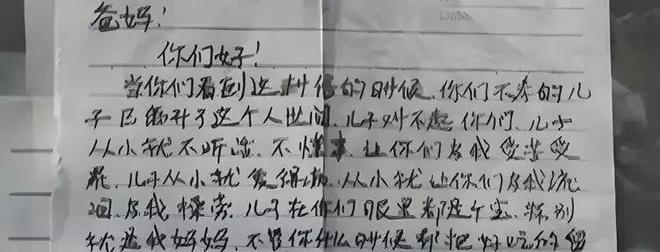 爸妈！
你们好！
当你们看到这封信的时候，你们不孝的儿
子已离开了这个人世间，儿子对不起你们，儿子
从小就不听话，不懂事，让你们为我受苦受
罪，儿子从小就爱得病，从小就让你们为我流
泪，为我操劳，儿子在你们眼里都是个宝，特别
就是我妈妈，不管你什么时候都把好吃的留